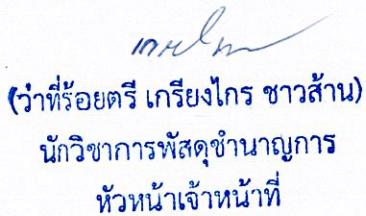 (ว่าที่ร้อยตรี เกรียงไกร ชาวส้าน)
นักวิชาการพัสดุชำนาญการ
หัวหน้าเจ้าหน้าที่